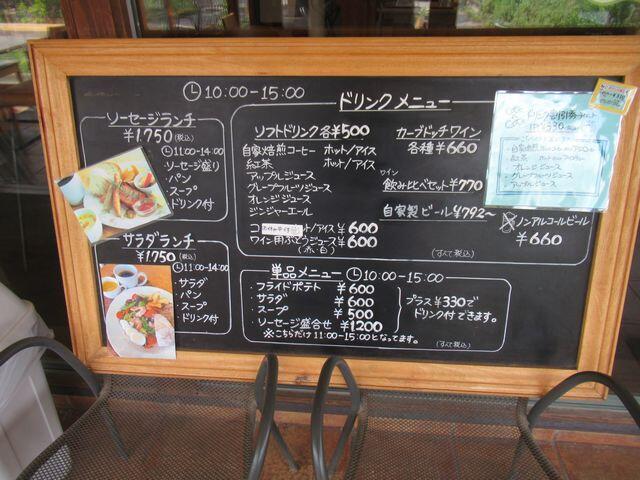 10:00-15:00
ソーセージランチ
¥1750(税込)
11:00-14:00
・ソーセージ盛り
・パン
・スープ
・ドリンク付
サラダランチ
¥1750(税込)
11:00-14:00
・サラダ
・パン
・スープ
・ドリンク付
ドリンクメニュー
ソフトドリンク各¥500
自家焙煎コーヒー ホット/アイス
紅茶 ホット/アイス
アップルジュース
グレープフルーツジュース
オレンジジュース
ジンジャーエール
ット/アイス ¥600
ワイン用ぶどうジュース ¥600
(赤・白)
カーブドッチワイン
各種¥660
ワイン
飲み比べセット¥770
自家製ビール¥792~
ノンアルコールビール
¥660
(すべて税込)
単品メニュー 10:00-15:00
・フライドポテト ¥600
・サラダ ¥600
・スープ ¥500
・ソーセージ盛合せ ¥1200
※こちらだけ11:00-15:00となってます。
プラス¥330で
ドリンク付できます。
(すべて税込)
¥330
・自家焙煎コーヒー
・紅茶 ホット/アイス
・オレンジジュース
・グレープフルーツジュース
・アップルジュース